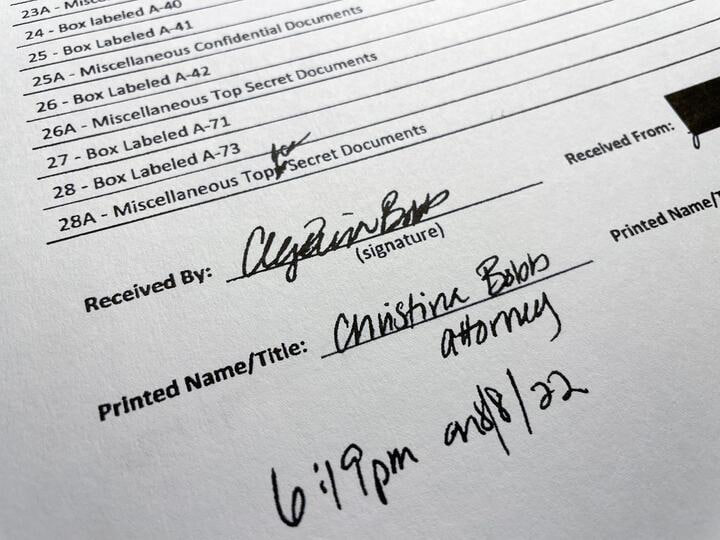 23A - Misc
24 - Box labeled A-40
25 - Box Labeled A-41
25A - Miscellaneous Confidential Documents
26 - Box Labeled A-42
26A - Miscellaneous Top Secret Documents
27 - Box Labeled A-71
28 - Box Labeled A-73
28A - Miscellaneous Top Secret Documents
Received By:
Received From:
(signature)
Printed Name/Title: Christina Bobb
Printed Name/T
attorney
6:19pm on 8/8/22